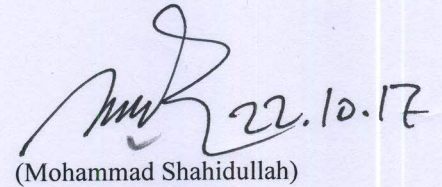 22.10.17
(Mohammad Shahidullah)